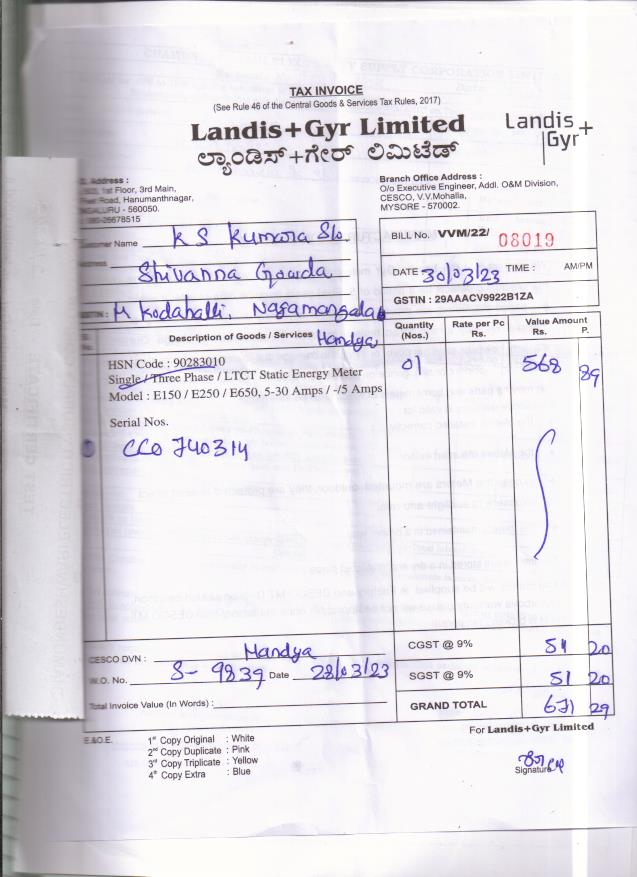 TAX INVOICE
(See Rule 46 of the Central Goods & Services Tax Rules, 2017)
Landis+Gyr Limited
ಲ್ಯಾಂಡಿಸ್+ಗೇರ್ ಲಿಮಿಟೆಡ್
Landis+
Gyr
Address :
1st Floor, 3rd Main,
Road, Hanumanthnagar,
- 560050.
26678515
Branch Office Address :
O/o Executive Engineer, Addl. O&M Division,
CESCO, V.V.Mohalla,
MYSORE - 570002.
Customer Name K S Kumara S/o
Address Shivanna Gowda
GSTIN : M Kodahalli, Nagamangala
BILL No. VVM/22/ 08019
DATE 30/03/23 TIME : AM/PM
GSTIN : 29AAACV9922B1ZA
Description of Goods / Services Mandya
Quantity (Nos.) Rate per Pc Rs. Value Amount Rs. P.
HSN Code : 90283010 01 568 89
Single / Three Phase / LTCT Static Energy Meter
Model : E150 / E250 / E650, 5-30 Amps / -/5 Amps
Serial Nos.
CCO 740314
CESCO DVN : Mandya
W.O. No. S- 9839 Date 28/03/23
Total Invoice Value (In Words) :
CGST @ 9% 51 20
SGST @ 9% 51 20
GRAND TOTAL 671 29
E.&O.E.
1st Copy Original : White
2nd Copy Duplicate : Pink
3rd Copy Triplicate : Yellow
4th Copy Extra : Blue
For Landis+Gyr Limited
Signature